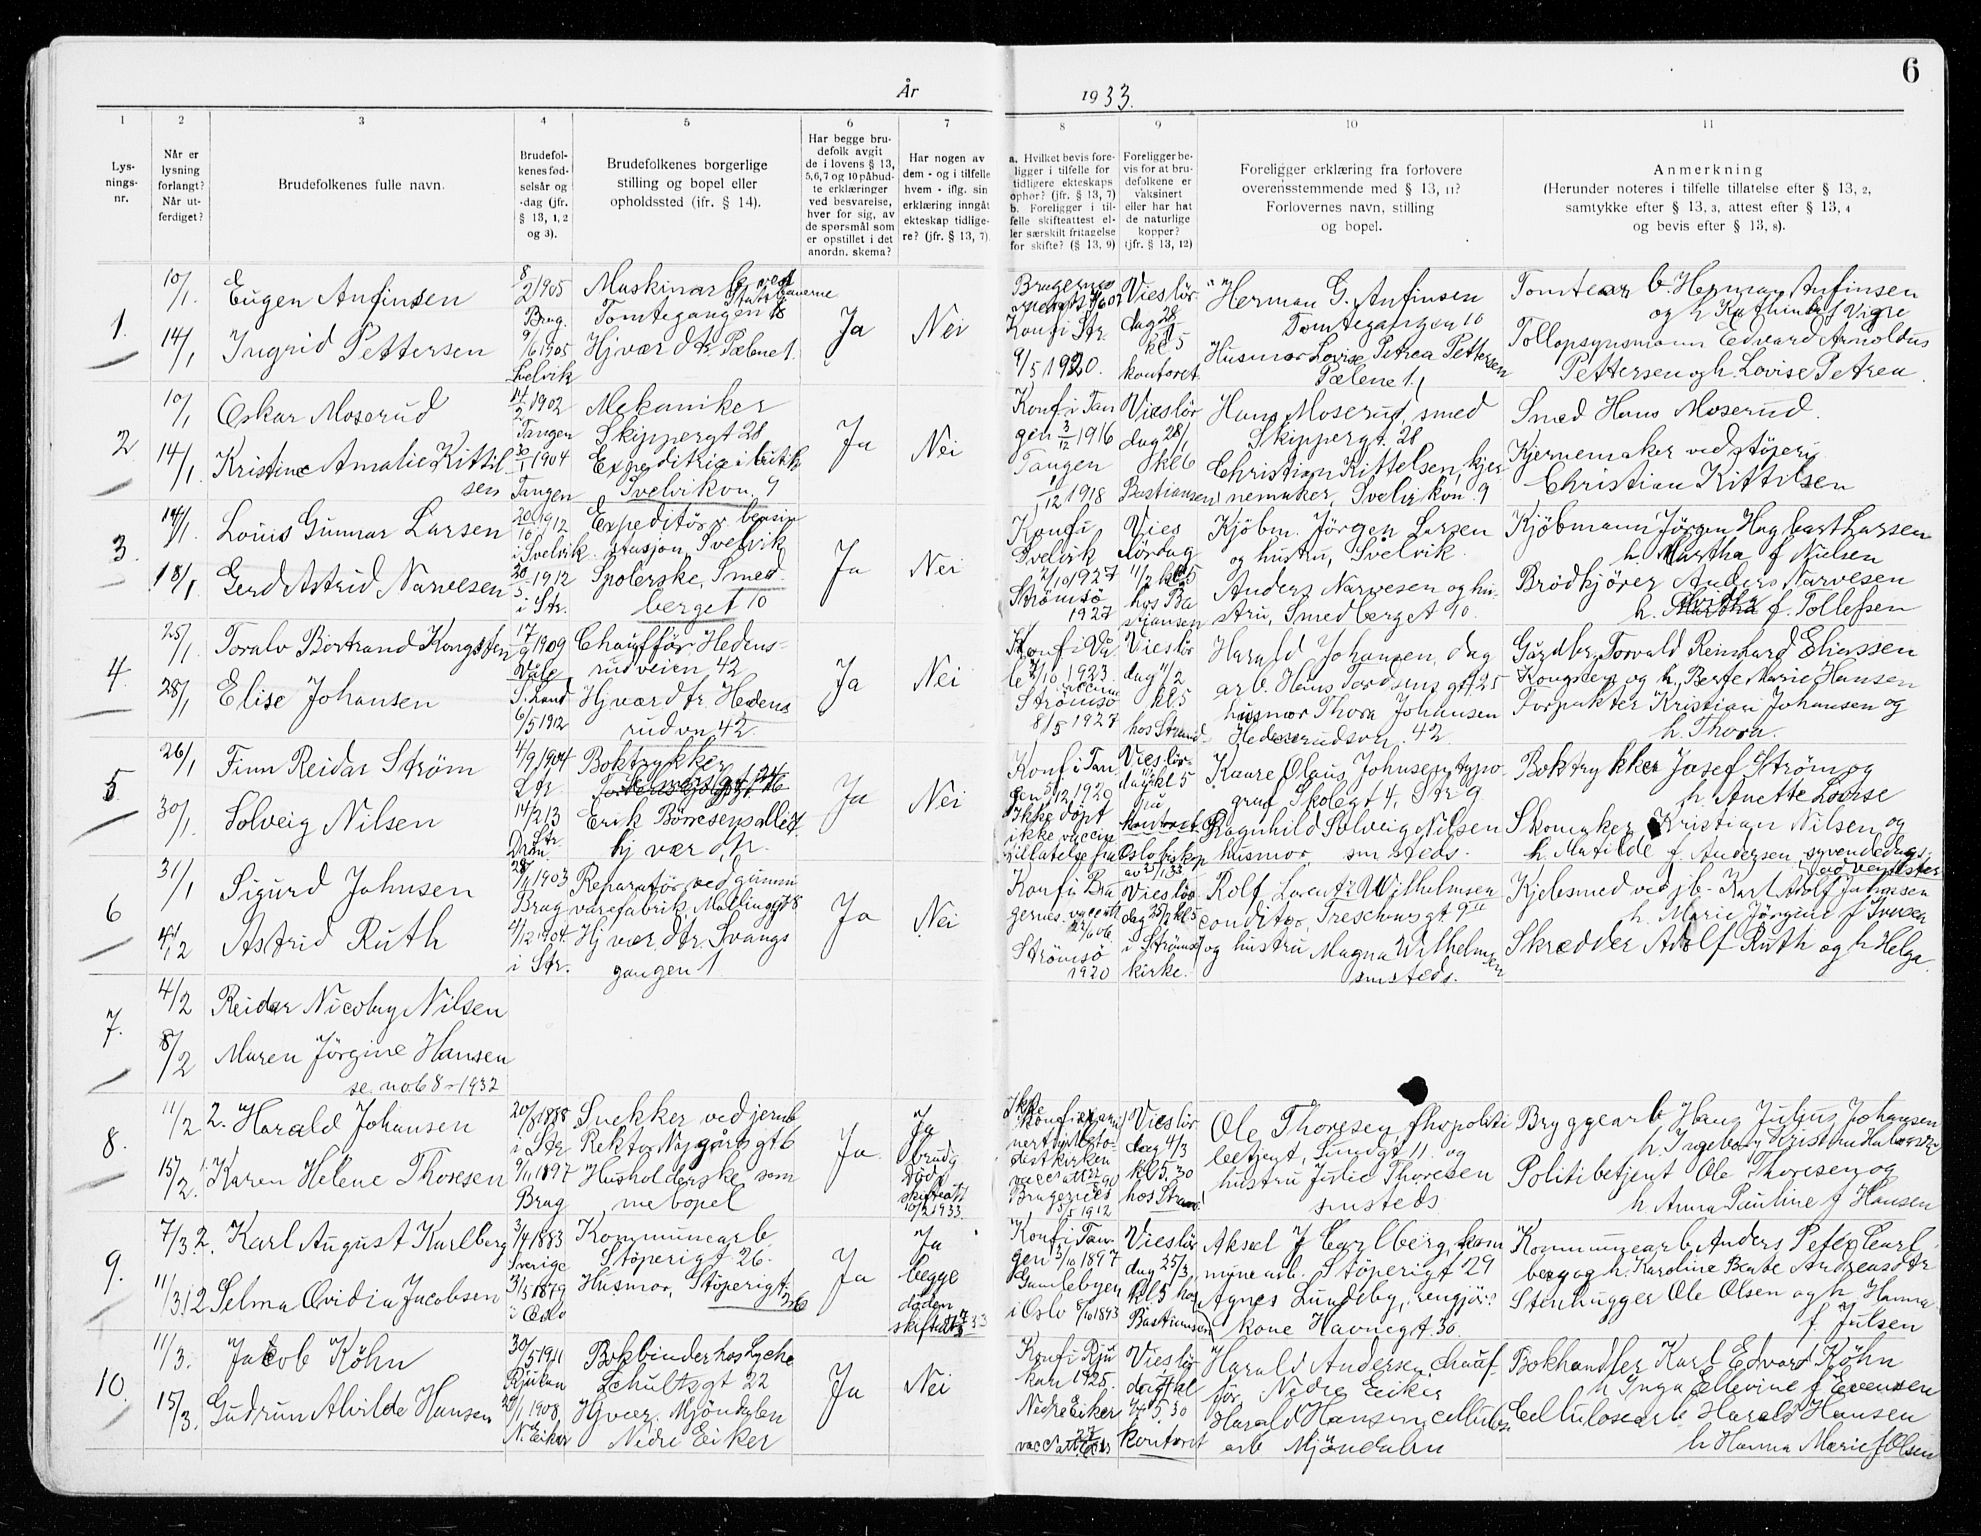 6
År 1933.
1 2 3 4 5 6 7 8 9 10 11
Lys-
nings-
nr.
Når er
lysning
forlangt?
Når ut-
ferdiget?
Brudefolkenes fulle navn.
Brudefol-
kenes fød-
selsår og
-dag (jfr.
§ 13, 1, 2
og 3).
Brudefolkenes borgerlige
stilling og bopel eller
opholdssted (ifr. § 14).
Har begge bru-
defolk avgit
de i lovens § 13,
5, 6, 7 og 10 påbud-
te erklæringer
ved besvarelse,
hver for sig, av
de spørsmål som
er opstillet i det
anordn. skema?
Har nogen av
dem - og i tilfelle
hvem - iflg. sin
erklæring inngåt
ekteskap tidlige-
re? (jfr. § 13, 7)
a. Hvilket bevis fore-
ligger i tilfelle for
tidligere ekteskaps
ophør? (jfr. § 13, 7)
b. Foreligger i til-
felle skifteattest el-
ler særskilt fritagelse
for skifte? (§ 13, 9)
Foreligger be-
vis for at bru-
defolkene er
vaksinert
eller har hat
de naturlige
kopper?
(jfr. § 13, 12)
Foreligger erklæring fra forlovere
overensstemmende med § 13, 11?
Forlovernes navn, stilling
og bopel.
Anmerkning
(Herunder noteres i tilfelle tillatelse efter § 13, 2,
samtykke efter § 13, 3, attest efter § 13, 4
og bevis efter § 13, 8).
1.
10/1.
14/1
Eugen Anfinsen
Ingrid Pettersen
8/2 1905
Brag.
9/6 1905
Svelvik
Maskinarb. ved
Tomtegangen 18
Hj vær d tr. Pælene 1.
Ja
Nei
Konf i Str.
9/5 1920.
Vieslør
dag 28/1
kl 5
kontoret
Herman G. Anfinsen
Tomtegangen 10
Husmor Lovise Petrea Pettersen
Pælene 1,
Tomtearb. Herman Anfinsen
og h Kathinka f Vigre
Tollopsynsmann Edvard Arnoldus
Pettersen og h. Lovise Petrea
2
10/1
14/1
Oskar Moserud
Kristine Amalie Kittil
sen
14/2 1902
Tangen
30/1 1904
Tangen
Mekaniker
Skippergt 28
Svelvikvn. 9
Ja
Nei
Konf i Tan
gen 3/12 1916
Tangen
1/12 1918
Vieslør
dag 28/1
kl 6
Bastiansen
Hans Moserud, smed
Skippergt. 28
Christian Kittelsen, kjer
nemaker, Svelvikvn. 9
Smed Hans Moserud.
Kjernemaker ved støperi
Christian Kittilsen
3.
14/1
18/1
Louis Gunnar Larsen
Gerd Astrid Narvesen
20/10 1912
i Svelvik
20/5 1912
i Str.
Expeditør v bensin
stasjon, Svelvik
Spolerske, Smed-
berget 10
Ja
Nei
Konf i
Svelvik
2/10 1927
Strømsø
1927
Vies
lørdag
11/2 kl 5
hos Ba
stiansen
Kjøbm. Jørgen Larsen
og hustru, Svelvik.
Anders Narvesen og hu-
stru, Smedberget 10.
Kjøbmann Jørgen Hagbart Larsen
h. Martha f Nielsen
Brødkjører Anders Narvesen
h. f. Tollefsen
4
25/1
28/1
Toralv Bertrand Kongsten
Elise Johansen
17/9 1909
Våle
S. Land
6/5 1912
Chauffør Hedens-
rudveien 42
Hj vær d tr. Hedens
rudvn 42.
Ja
Nei
Konf i Vå
le 7/10 1923.
Strømsø
8/5 1927
Vieslør
dag 11/2
kl 5
hos Strand
Harald Johansen, dag
arb. Hans Tordsens gt. 25
husmor Thora Johansen
Hedensrudsvn. 42.
Gårdbr. Torvald Reinhard Eliassen
Kongsten og h, Berte Marie Hansen
Forpakter Kristian Johansen og
h. Thora.
5
26/1
30/1
Finn Reidar Strøm
Solveig Nilsen
4/9 1904
Str
14/2 13
Str
Dram.
Boktrykker
Erik Børresens alle 7
hj vær d tr.
Ja
Nei
Konf i Tan
gen 5/12 1920
Ikke døpt
ikke vaccin
tillatelse fra
Vieslør-
dag kl 5
på
kontoret
Oslo biskop
av 25/1 33
Kaare Olaus Johnsen, typo-
graf Skolegt 4, Str 9
Ragnhild Solveig Nilsen
husmor, smsteds.
Boktrykker Josef Strøm og
h. Anette Lovise
Skomaker Kristian Nilsen og
h. Matilde f. Andersen, syvendedags-
adventister
6
31/1
4/2
Sigurd Johnsen
Astrid Ruth
28/11 1903
Brag
4/12 1904.
i Str.
Reparatør ved gummi
varefabrik, Mallinggt 8
Hj vær d tr. Svangs
gangen 1.
Ja
Nei
Konf i Bra
gernes
Strømsø
1920
Vieslør
dag 25/2 kl 5
i Strømsø
kirke.
Rolf Laurentz Wilhelmsen
conditor, Treschowsgt 9
og hustru Magna Wilhelmsen
smsteds.
Kjelesmed ved jb. Karl Adolf Johnsen
h. Marie Jørgine f Iversen
Skredder Adolf Ruth og h Helga.
7.
4/2
8/2
Reidar Nicolay Nilsen
Maren Jørgine Hansen
se no. 68 - 1932
8.
11/2
15/2.
2. Harald Johansen
1. Karen Helene Thoresen
20/8 1888
i Str
9/11 1897
Brag
Snekker ved jernb
Rektor Nygårds gt 6
Husholderske som
me bopel
Ja
Ja
brudg
Død
skifteatt
10/2 1933.
Ikke
konf
distkirken
Bragernes
5/5 1912
Vieslør
dag 4/3
kl 5.30
hos Strand
Ole Thoresen, fhv politi
betjent, Sundgt 11. og
hustru Julie Thoresen
smsteds
Bryggearb Hans Julius Johansen
h. Ingeborg Kristine
Politibetjent Ole Thoresen og
h Anna Pauline f Hansen
9.
7/3.
11/3.
2. Karl August Karlberg
2 Selma Ovidia Jacobsen
3/4 1883
Sverige
3/5 1879
i Oslo
Kommunearb
Støperigt 26.
Husmor, Støperigt.
26
Ja
Ja
begge
døden
skifteatt
Konf i Tan-
gen 3/10 1897
Gamlebyen
i Oslo 8/10 1893
Vieslør
dag 25/3,
kl 5 hos
Bastiansen
Aksel J Carlberg, kom
munearb. Støperigt 29
Agnes Lundeby, rengjør.
kone Havnegt. 30.
Kommunearb Anders Peter Carl
berg og h. Karoline Beate Andreasdtr
Stenhugger Ole Olsen og h, Hanna
f. Julsen
10.
11/3.
15/3.
Jacob Køhn
Gudrun Alvilde Hansen
30/5 1911
Rjukan
29/1 1908,
N. Eiker
Bokbinder hos Lyche
Schultsgt 22
Hj vær, Mjøndalen
Nedre Eiker
Ja
Nei
Konf i Rju
kan 1925.
Nedre Eiker
Vieslør
dag kl
5.30
kontoret
Harald Andersen, chauf-
før, Nedre Eiker
Harald Hansen, cellulose
arb Mjøndalen
Bokhandler Karl Edvard Køhn
h Inga Ellevine f Evensen
Cellulosearb Harald Hansen
h Hanna Marie f Olsen